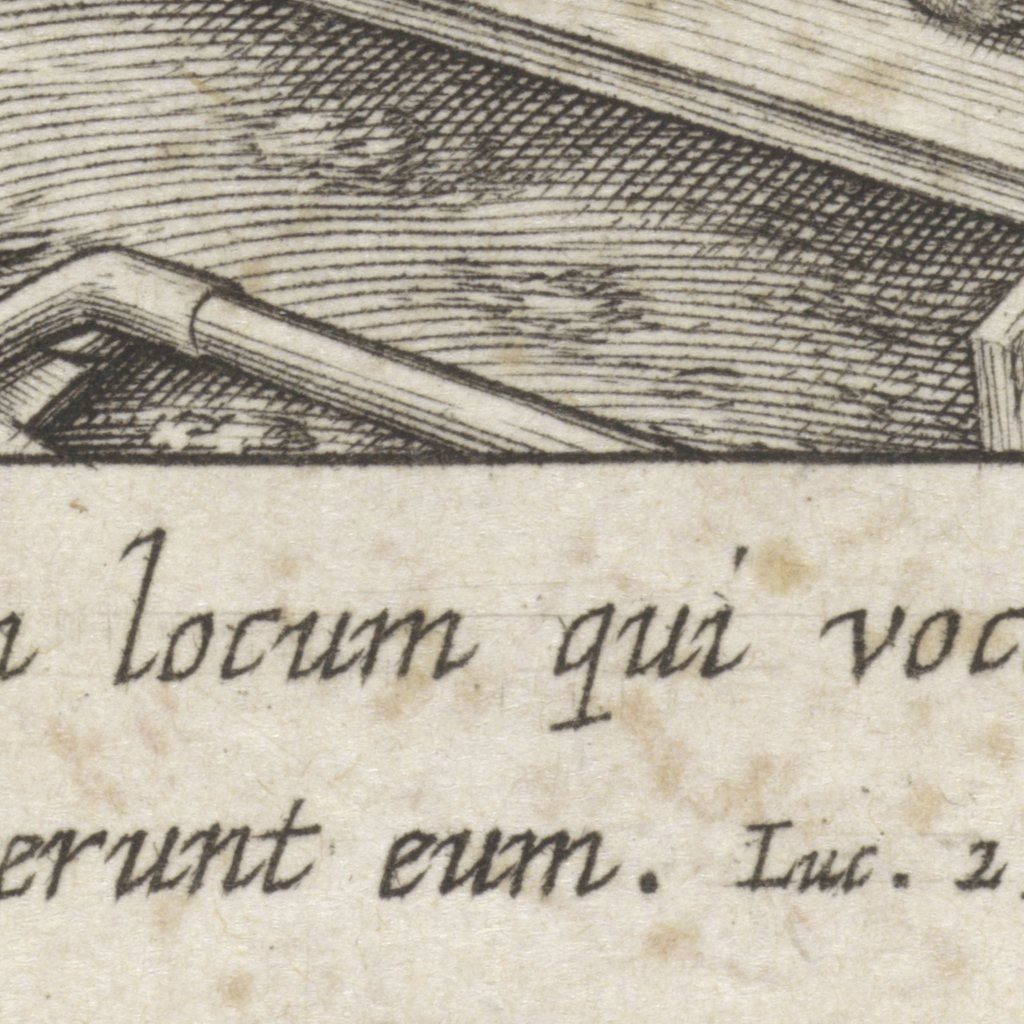 locum qui voc
erunt eum. Luc. 2